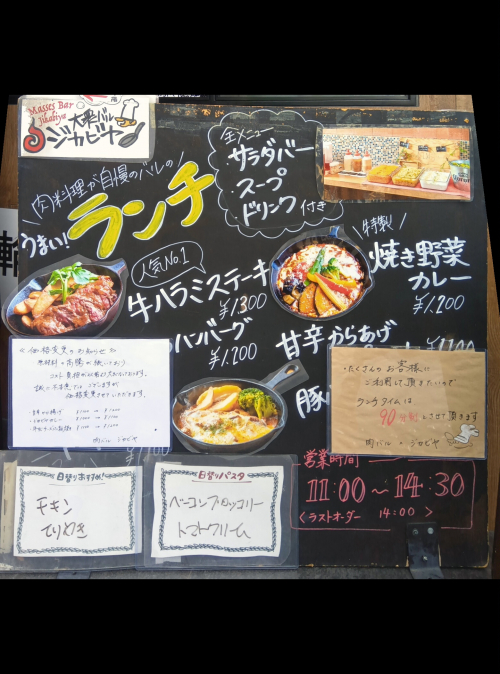 Masses Bar
Jikabiya
大衆バル
ジカビヤ
肉料理が自慢のバルの
うまい!
ランチ
全メニュー
サラダバー
・スープ
・ドリンク付き
人気No.1
牛ハラミステーキ
¥1,300
ハンバーグ
¥1,200
特製!
焼き野菜
カレー
¥1,200
甘辛からあげ
豚
価格変更のお知らせ
・たくさんのお客様に
ご利用して頂きたいので
ランチタイムは
90分制とさせて頂きます
肉バル ジカビヤ
肉バル ジカビヤ
日替りおすすめ!
チキン
てりやき
日替りパスタ
ベーコンブロッコリー
トマトクリーム
営業時間
11:00~14:30
<ラストオーダー 14:00>